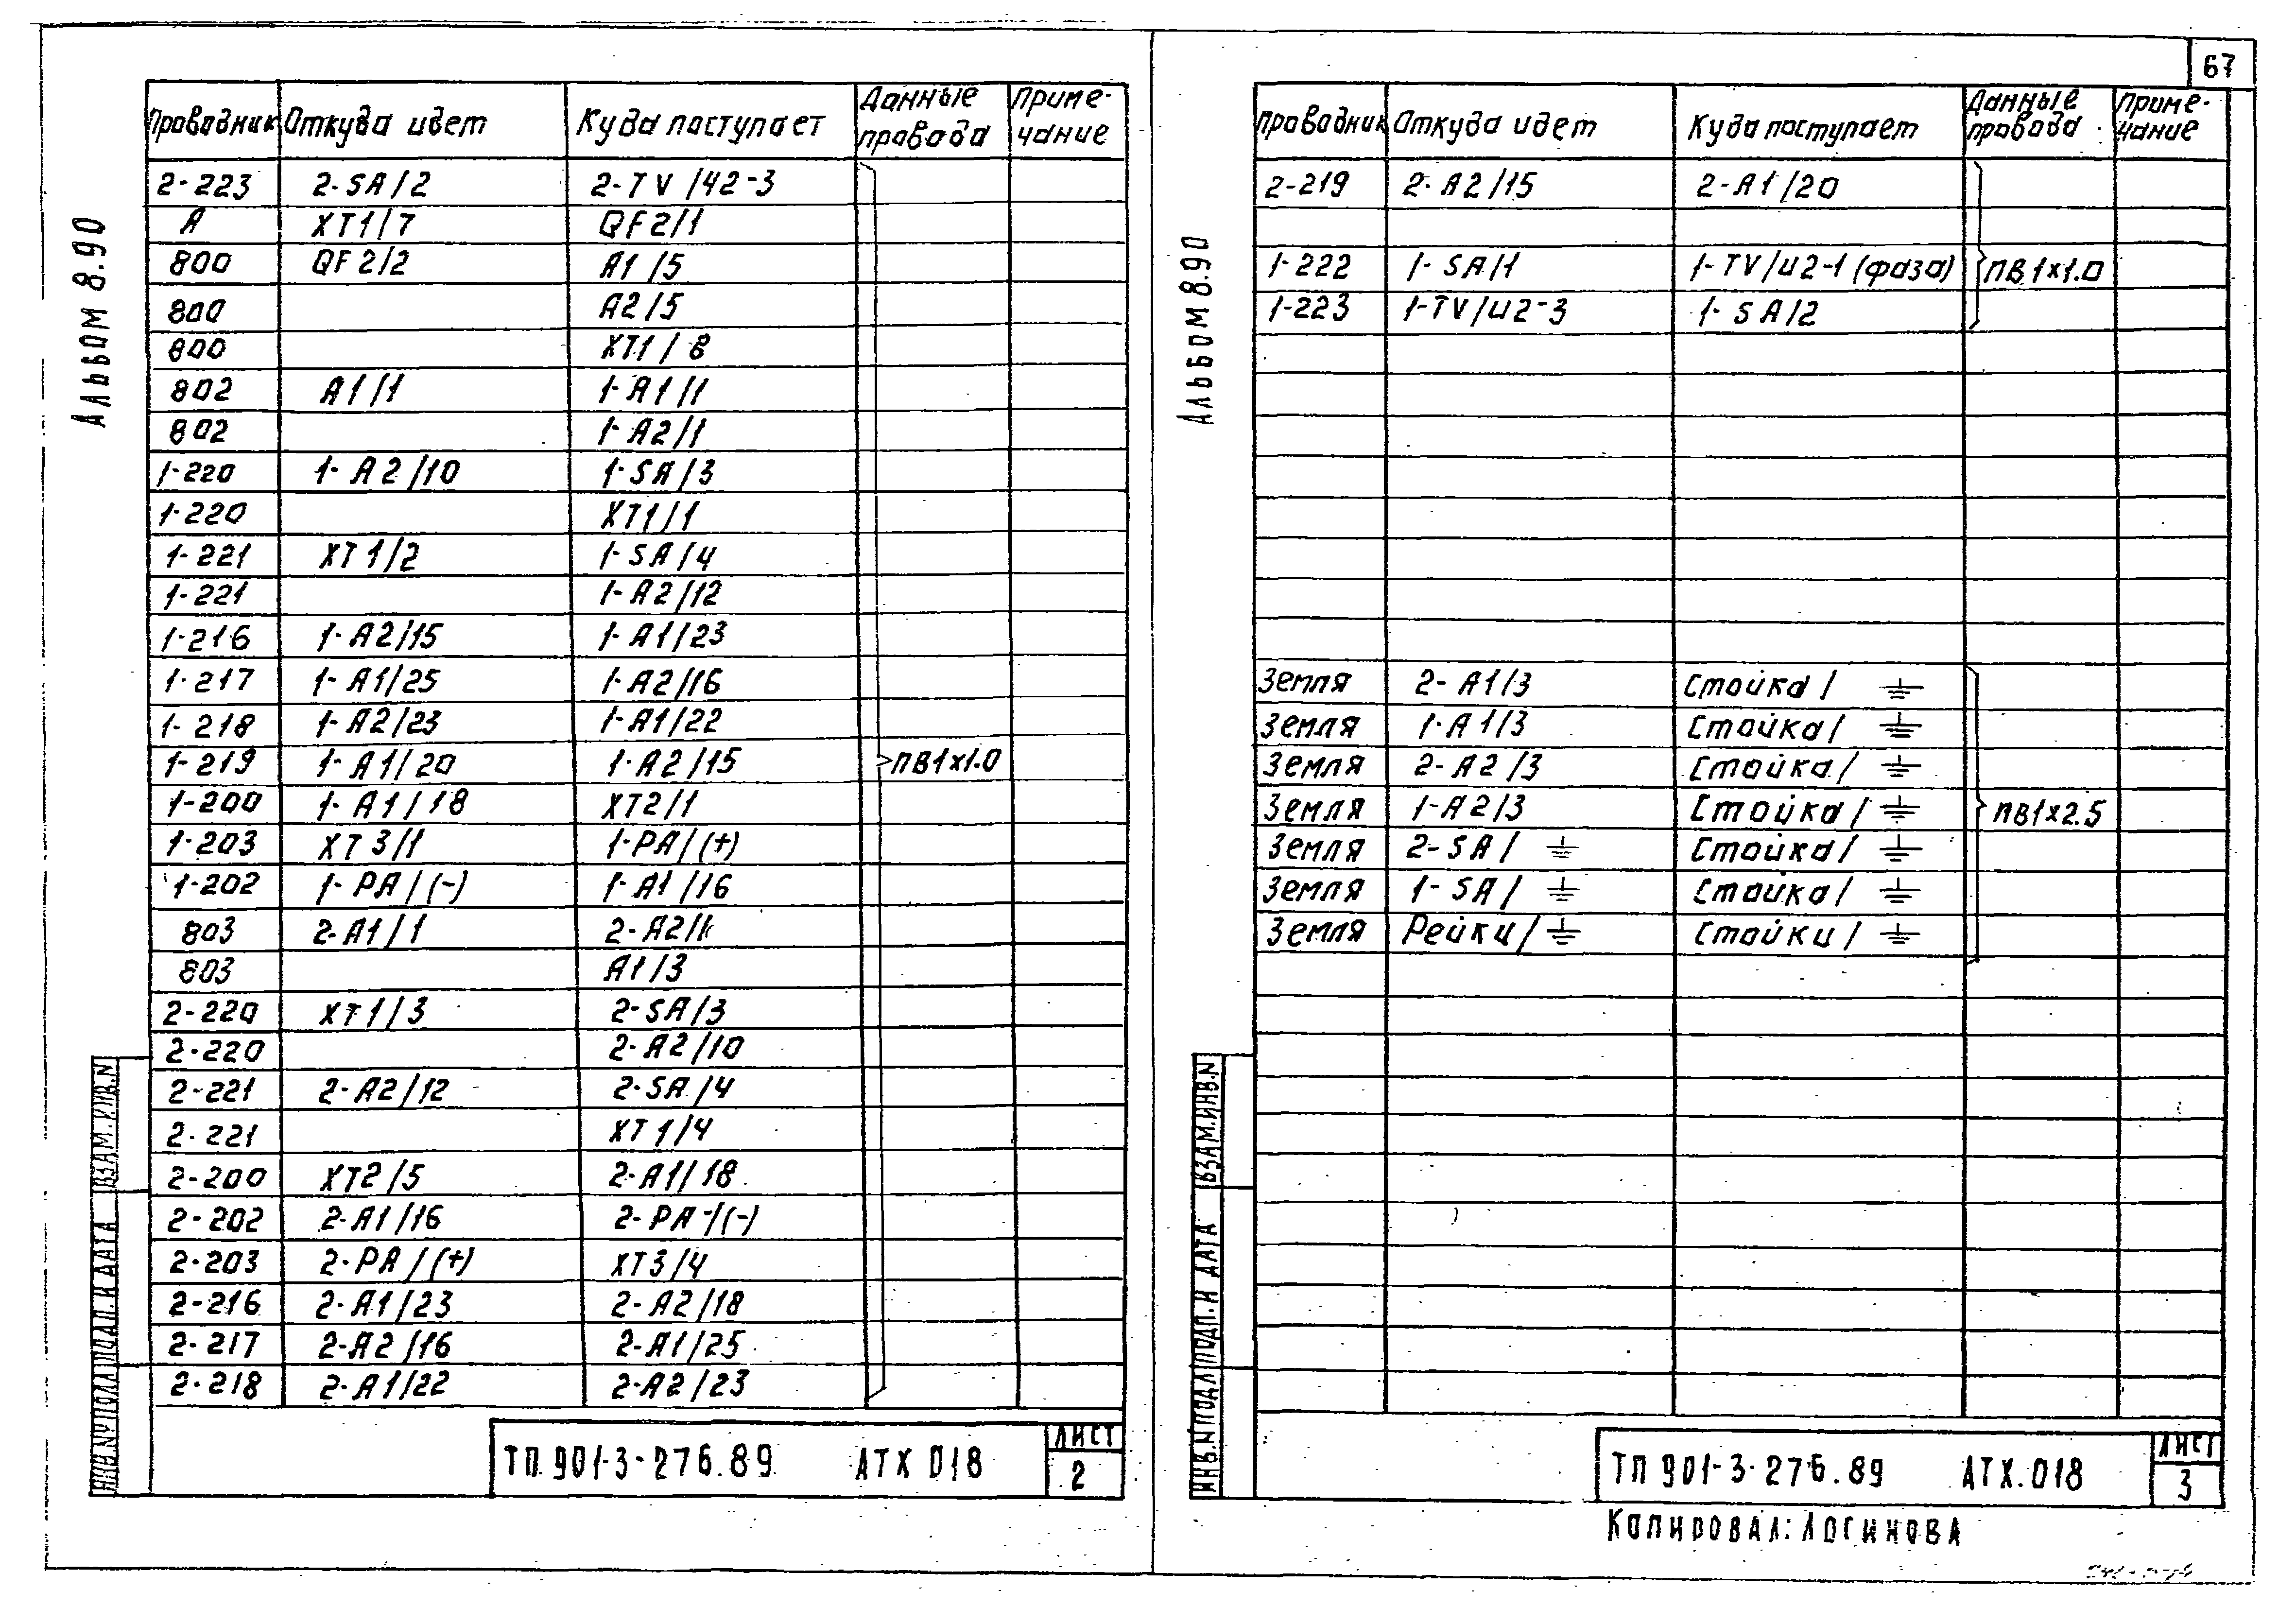 67
Альбом 8.90
Проводник Откуда идет Куда поступает Данные провода Приме-чание
2-223 2-SA/2 2-TV/42-3
А XT1/7 QF2/1
800 QF2/2 A1/5
800 A2/5
800 XT1/8
802 A1/1 1-A1/1
802 1-A2/1
1-220 1-A2/10 1-SA/3
1-220 XT1/1
1-221 XT1/2 1-SA/4
1-221 1-A2/12
1-216 1-A2/15 1-A1/23
1-217 1-A1/25 1-A2/16
1-218 1-A2/23 1-A1/22
1-219 1-A1/20 1-A2/15 ПВ1х1.0
1-200 1-A1/18 XT2/1
1-203 XT3/1 1-PA/(+)
1-202 1-PA/(-) 1-A1/16
803 2-A1/1 2-A2/1
803 A1/3
2-220 XT1/3 2-SA/3
2-220 2-A2/10
2-221 2-A2/12 2-SA/4
2-221 XT1/4
2-200 XT2/5 2-A1/18
2-202 2-A1/16 2-PA/(-)
2-203 2-PA/(+) XT3/4
2-216 2-A1/23 2-A2/18
2-217 2-A2/16 2-A1/25
2-218 2-A1/22 2-A2/23
ИНВ.№ПОДЛ ПОДП.И ДАТА ВЗАМ.ИНВ.N
ТП 901-3-276.89 АТХ 018 ЛИСТ 2
Альбом 8.90
Проводник Откуда идет Куда поступает Данные провода Приме-чание
2-219 2-A2/15 2-A1/20
1-222 1-SA/1 1-TV/И2-1 (фаза) ПВ1х1.0
1-223 1-TV/И2-3 1-SA/2
Земля 2-A1/3 Стойка/ ⏚
Земля 1-A1/3 Стойка/ ⏚
Земля 2-A2/3 Стойка/ ⏚
Земля 1-A2/3 Стойка/ ⏚ ПВ1х2.5
Земля 2-SA/ ⏚ Стойка/ ⏚
Земля 1-SA/ ⏚ Стойка/ ⏚
Земля Рейки/ ⏚ Стойки/ ⏚
ИНВ.№ПОДЛ ПОДП.И ДАТА ВЗАМ.ИНВ.N
ТП 901-3-276.89 АТХ.018 ЛИСТ 3
Копировал: Логинова